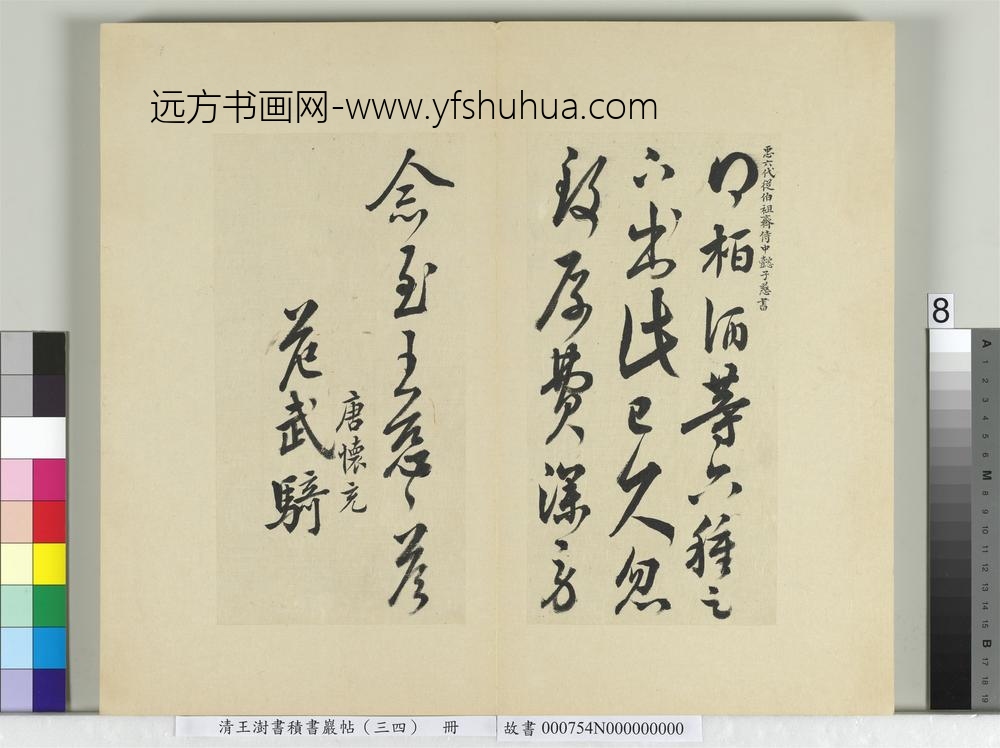 远方书画网-www.yfshuhua.com
𢘑六代從伯祖齊侍中懿子慈書
得柏酒等六種足
下出此已久忽
致厚費深勞
念至王慈具答
唐懷充
范武騎
8
A 1 2 3 4 5 6 M 8 9 10 11 12 13 14 15 B 17 18 19
清王澍書積書巖帖（三四） 冊 故書 000754N000000000